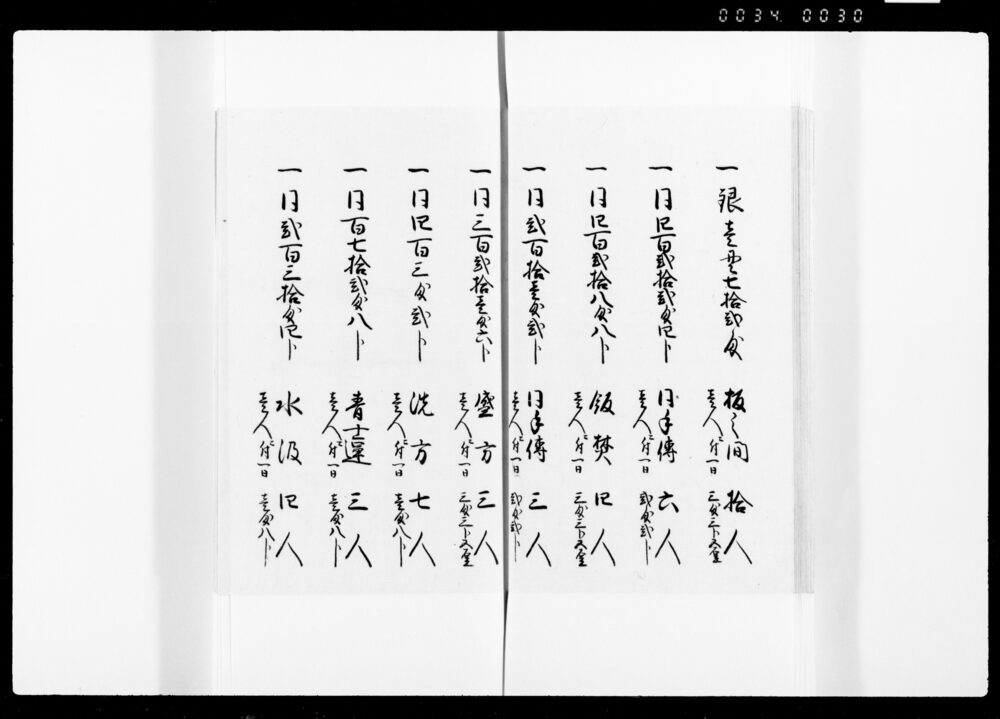 0034. 0030
一 銀壱貫七拾弐匁 板之間 拾人
壱人ニ付一日 三匁三分五厘
一 同四百弐拾弐匁四分 同手傳 六人
壱人ニ付一日 弐匁弐分
一 同四百弐拾八匁八分 飯焚 四人
壱人ニ付一日 三匁三分五厘
一 同弐百拾壱匁弐分 同手傳 三人
壱人ニ付一日 弐匁弐分
一 同三百弐拾壱匁六分 盛方 三人
壱人ニ付一日 三匁三分五厘
一 同四百三匁弐分 洗方 七人
壱人ニ付一日 壱匁八分
一 同百七拾弐匁八分 三人
壱人ニ付一日 壱匁八分
一 同弐百三拾匁四分 水汲 四人
壱人ニ付一日 壱匁八分